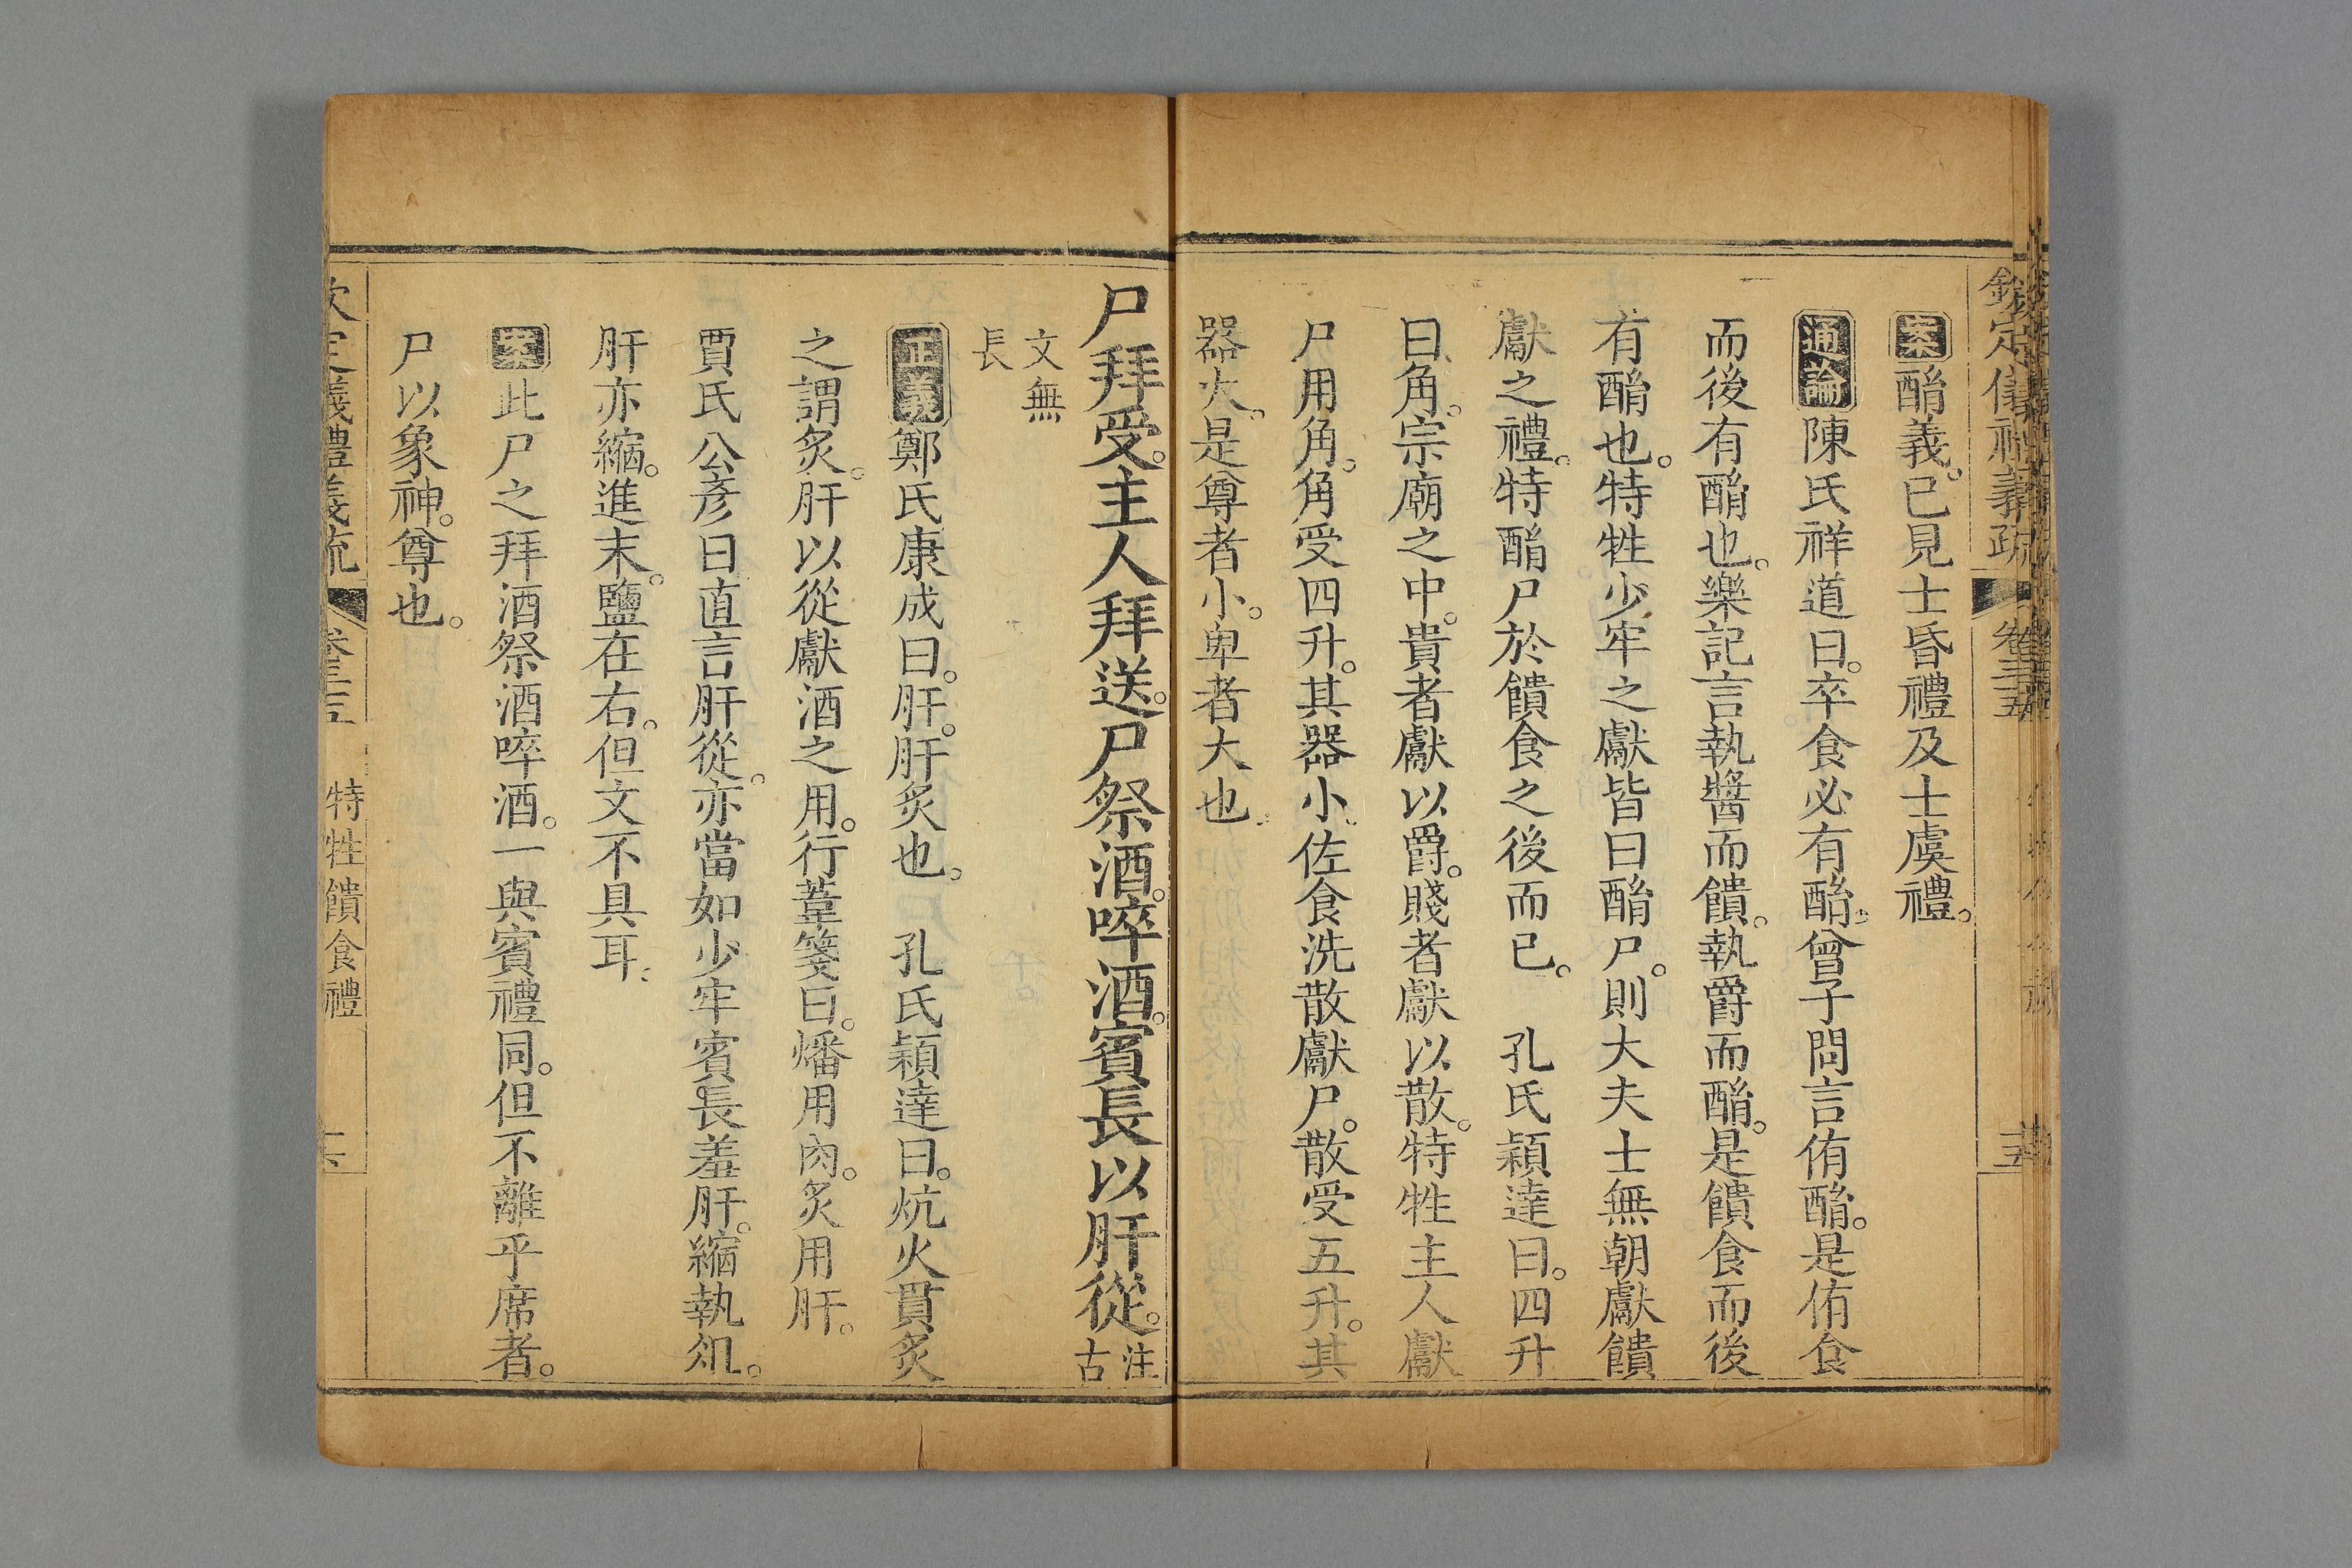 欽定儀禮義疏 卷三十五
案酳義。已見士昏禮及士虞禮。
通論陳氏祥道曰。卒食必有酳。曾子問言侑酳。是侑食
而後有酳也。樂記言執醬而饋。執爵而酳。是饋食而後
有酳也。特牲少牢之獻皆曰酳尸。則大夫士無朝獻饋
獻之禮。特酳尸於饋食之後而已。 孔氏穎達曰。四升
曰角。宗廟之中。貴者獻以爵。賤者獻以散。特牲主人獻
尸用角。角受四升。其器小。佐食洗散獻尸。散受五升。其
器大。是尊者小。卑者大也。
尸拜受。主人拜送。尸祭酒。啐酒。賓長以肝從。注古
文無長
正義鄭氏康成曰。肝。肝炙也。 孔氏穎達曰。炕火貫炙
之謂炙。肝以從獻酒之用。行葦箋曰。燔用肉。炙用肝。
賈氏公彥曰直言肝從。亦當如少牢賓長羞肝。縮執俎。
肝亦縮。進末。鹽在右。但文不具耳。
案此尸之拜酒祭酒啐酒。一與賓禮同。但不離乎席者。
尸以象神。尊也。
欽定義禮義疏 卷三十五 特牲饋食禮